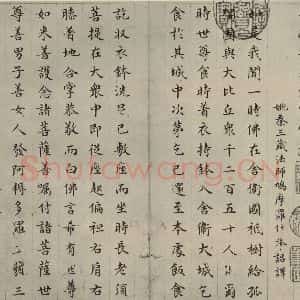 姚秦三藏法師鳩摩羅什奉詔譯
是我聞一時佛在舍衛國祇樹給孤
獨園與大比丘衆千二百五十人俱爾
時世尊食時着衣持鉢入舍衛大城乞
食於其城中次第乞已還至本處飯食
訖收衣鉢洗足已敷座而坐時長老須
菩提在大衆中即從座起偏袒右肩右
膝着地合掌恭敬而白佛言希有世尊
如来善護念諸菩薩善囑付諸菩薩世
尊善男子善女人發阿耨多羅三藐三
Shufawang.CN